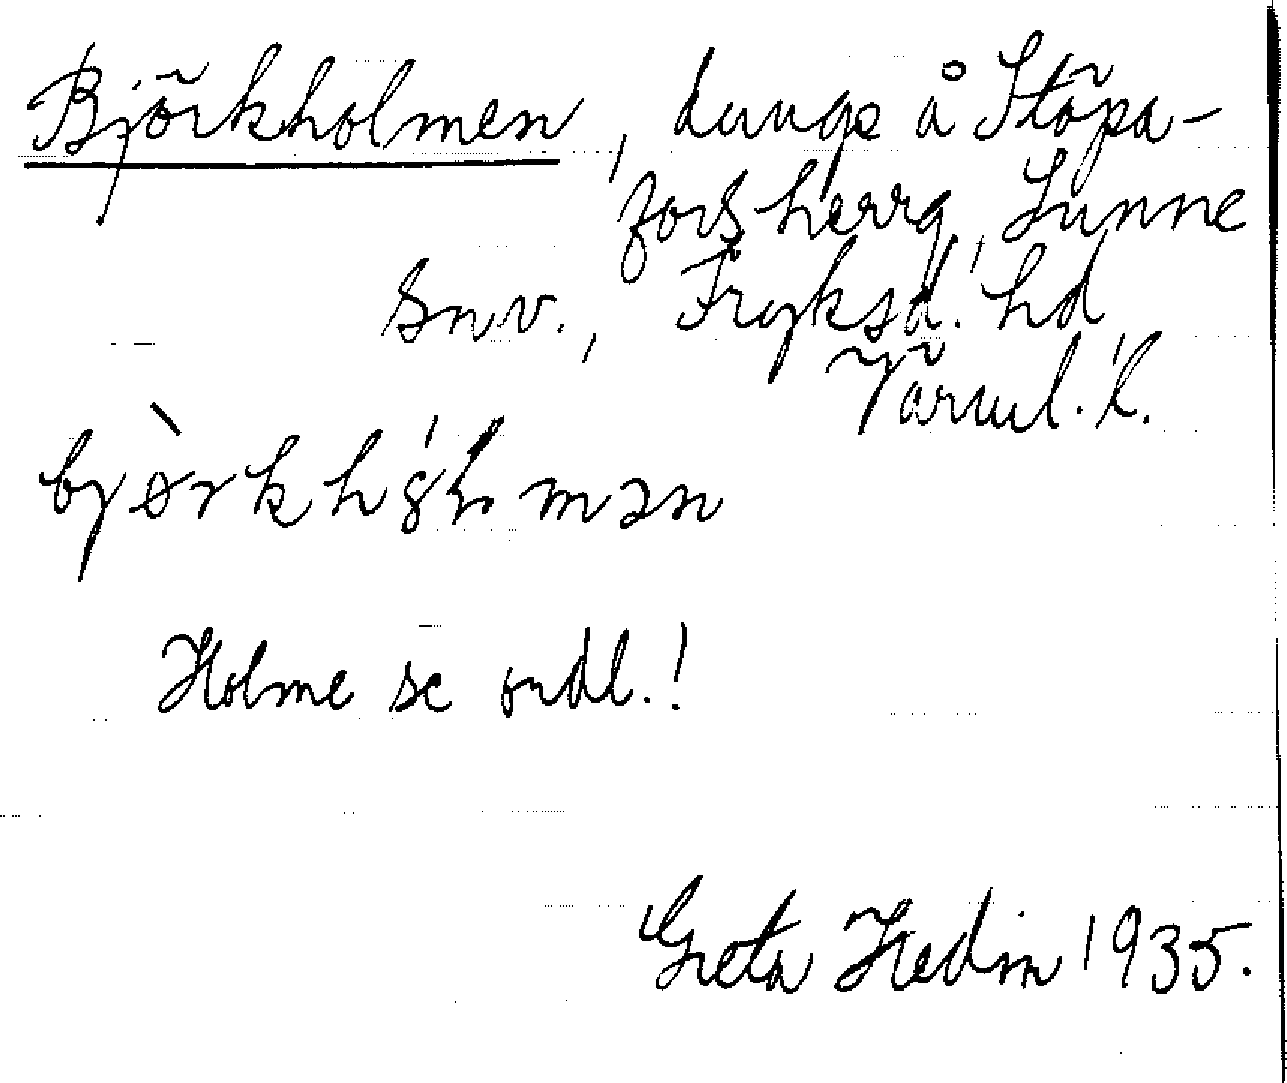 Björkholmen, dunge å Stöpa-
fors herrg, Sunne
Snv., Fryksd. hd,
Värml. l.
bjørkh mən
Holme se ordl.!
Greta Hedin 1935.